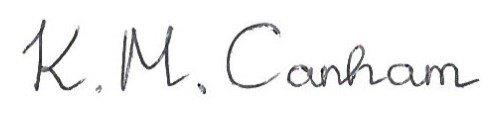 K. M. Canham